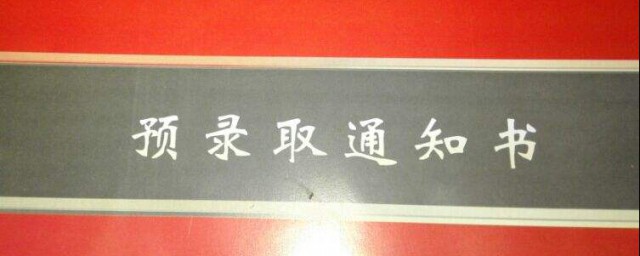 预录取通知书